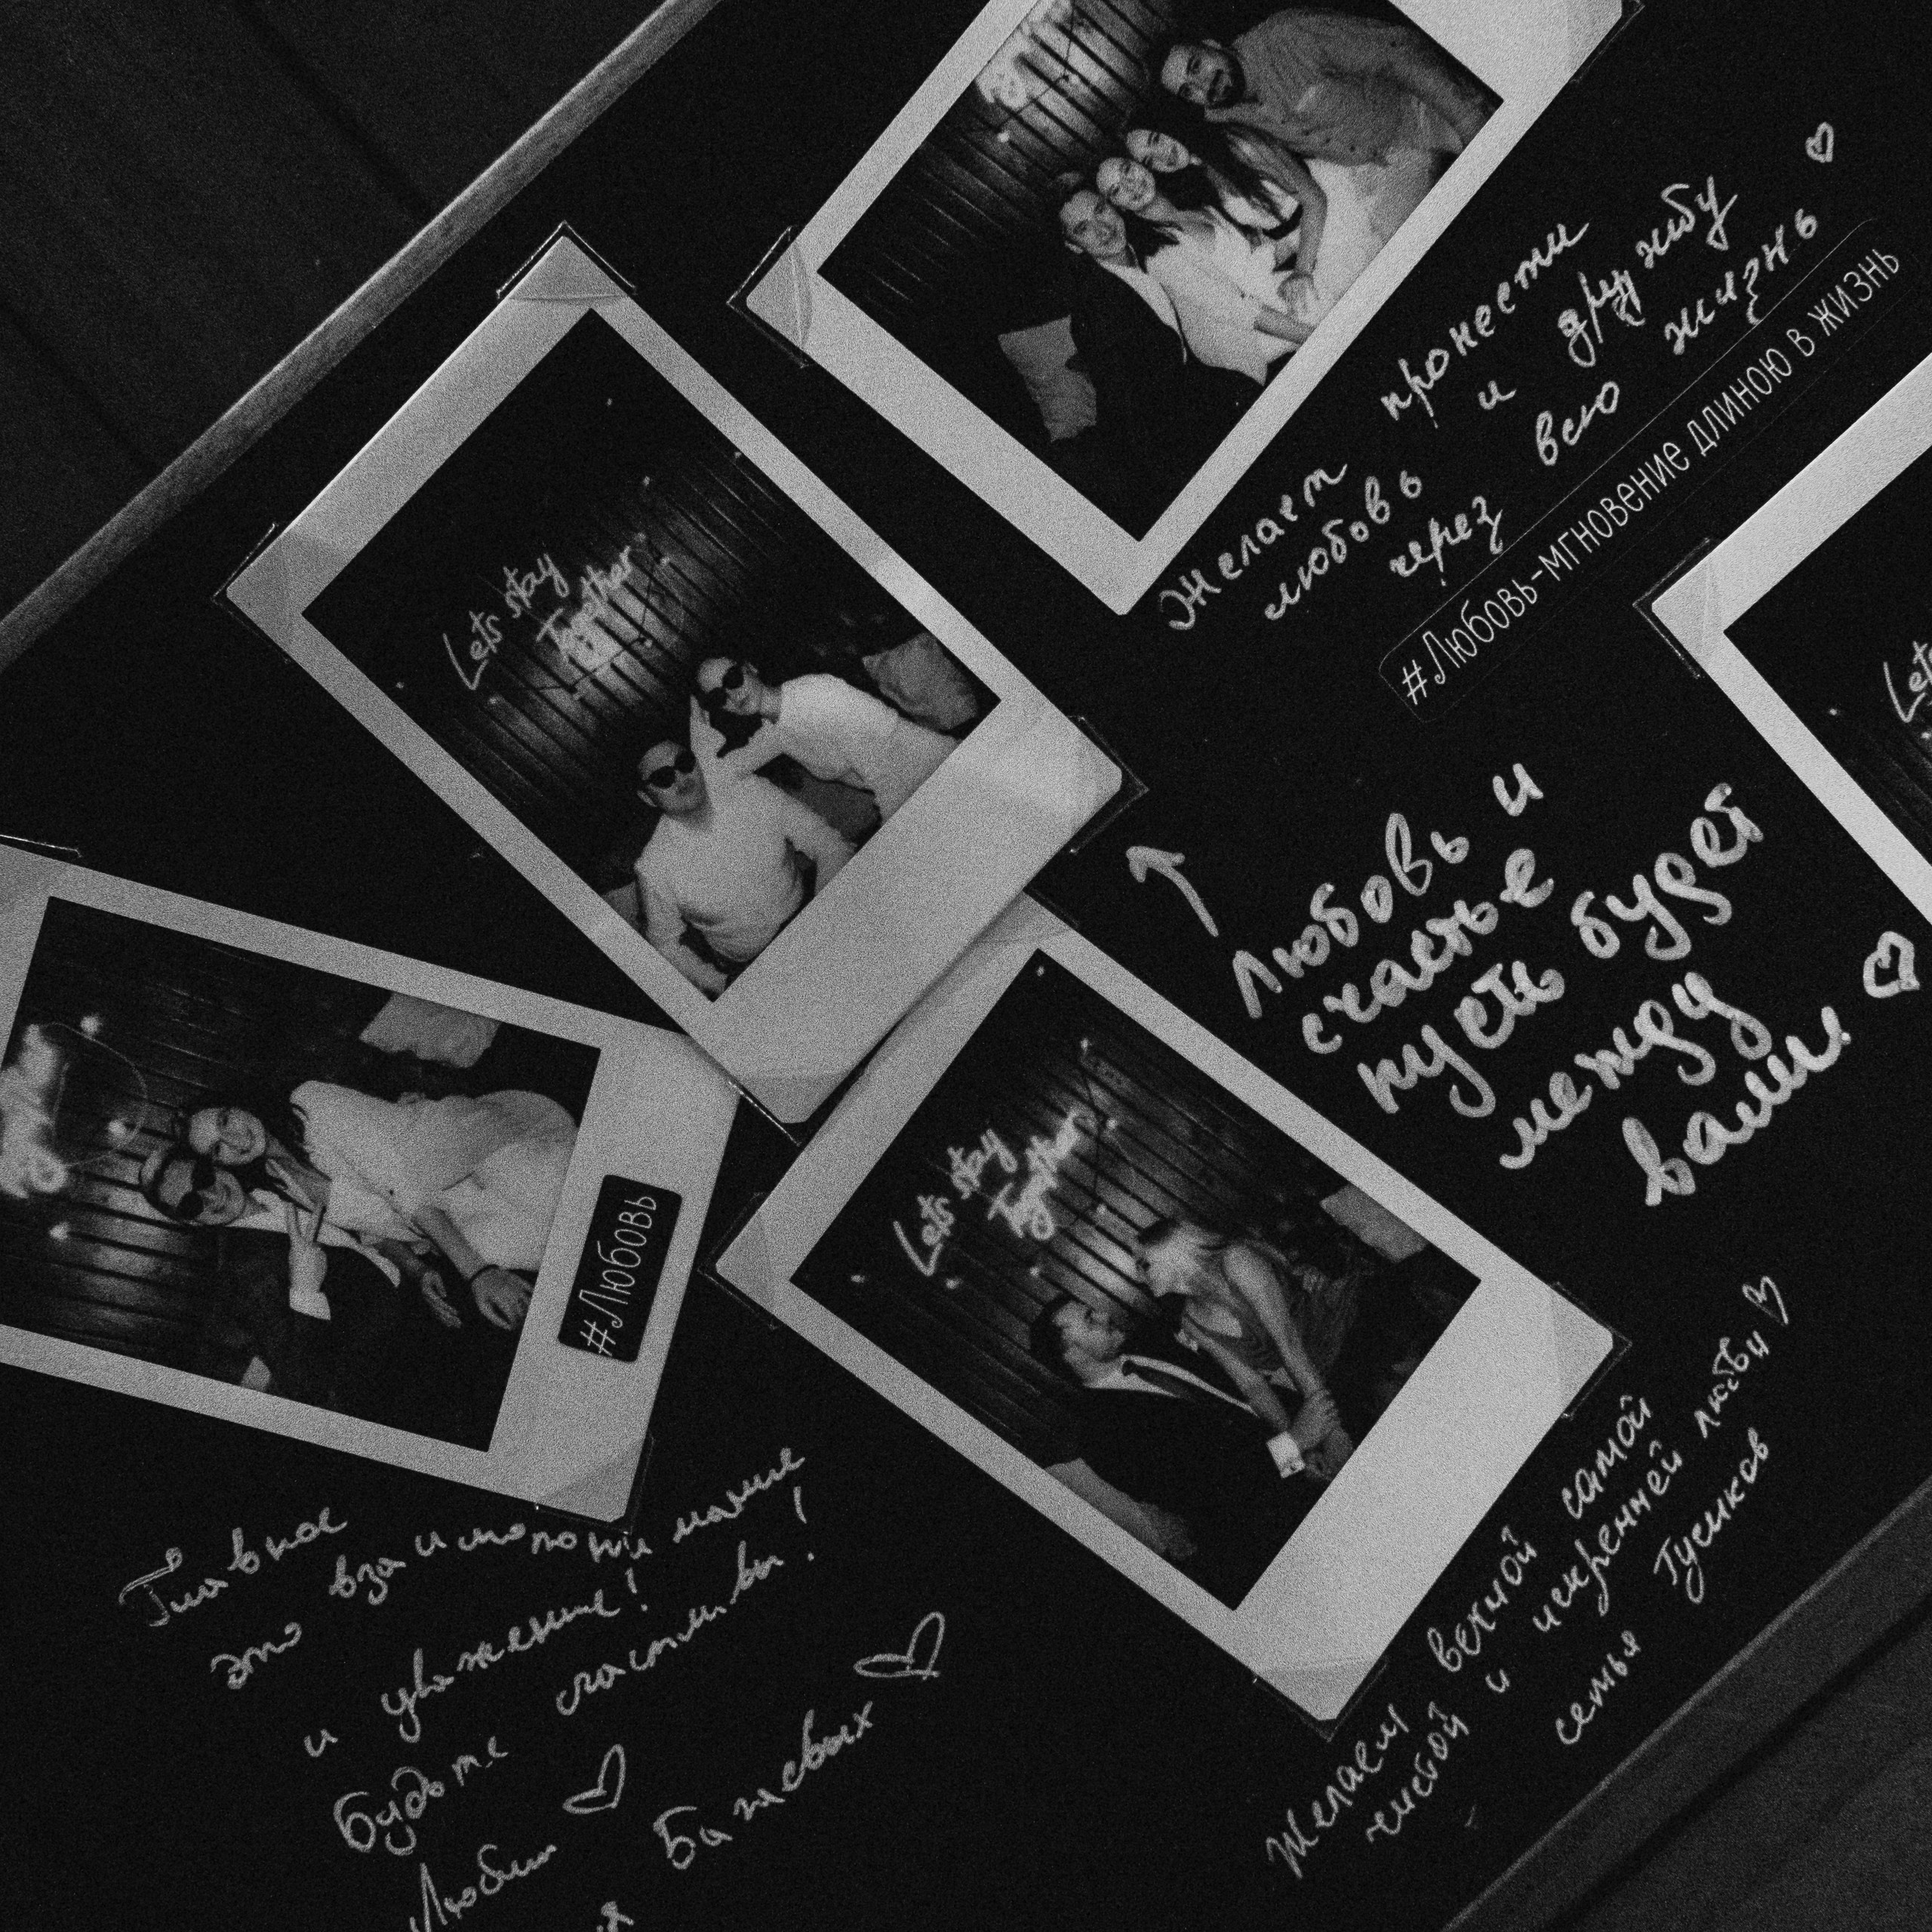 Желаем пронести
любовь и дружбу
через всю жизнь
#Любовь-мгновение длиною в жизнь
Lets stay
Together
Lets
Любовь и
счастье
пусть будет
между
вами!
#Любовь
Lets stay
Together
Главное
это взаимопонимание
и уважение!
Будьте счастливы!
Любим
Бажевых
Желаем вечной самой
чистой и искренней любви
семья Гусиков